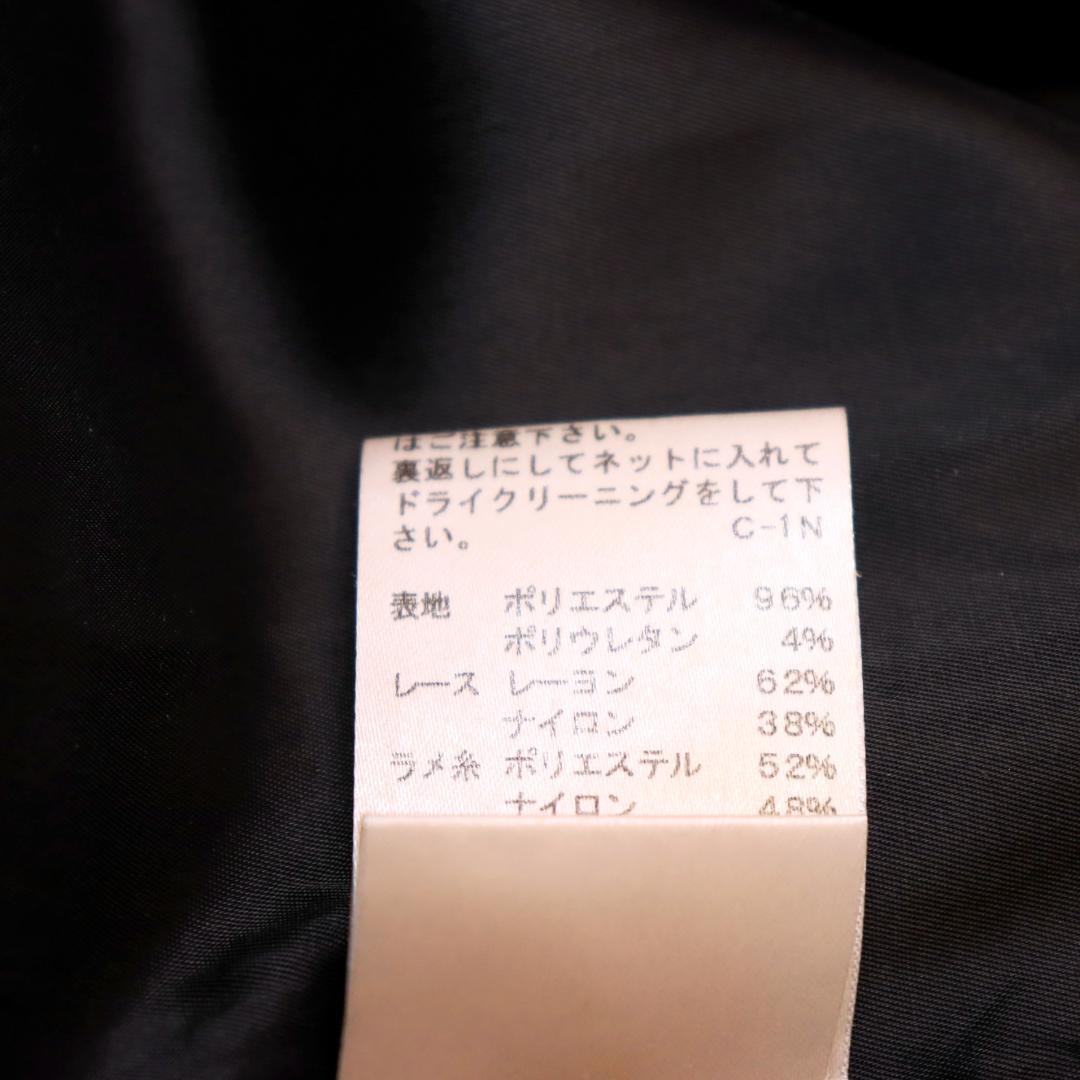 はご注意下さい。
裏返しにしてネットに入れて
ドライクリーニングをして下
さい。 C-1N
表地 ポリエステル 96%
ポリウレタン 4%
レース レーヨン 62%
ナイロン 38%
ラメ糸 ポリエステル 52%
ナイロン 48%